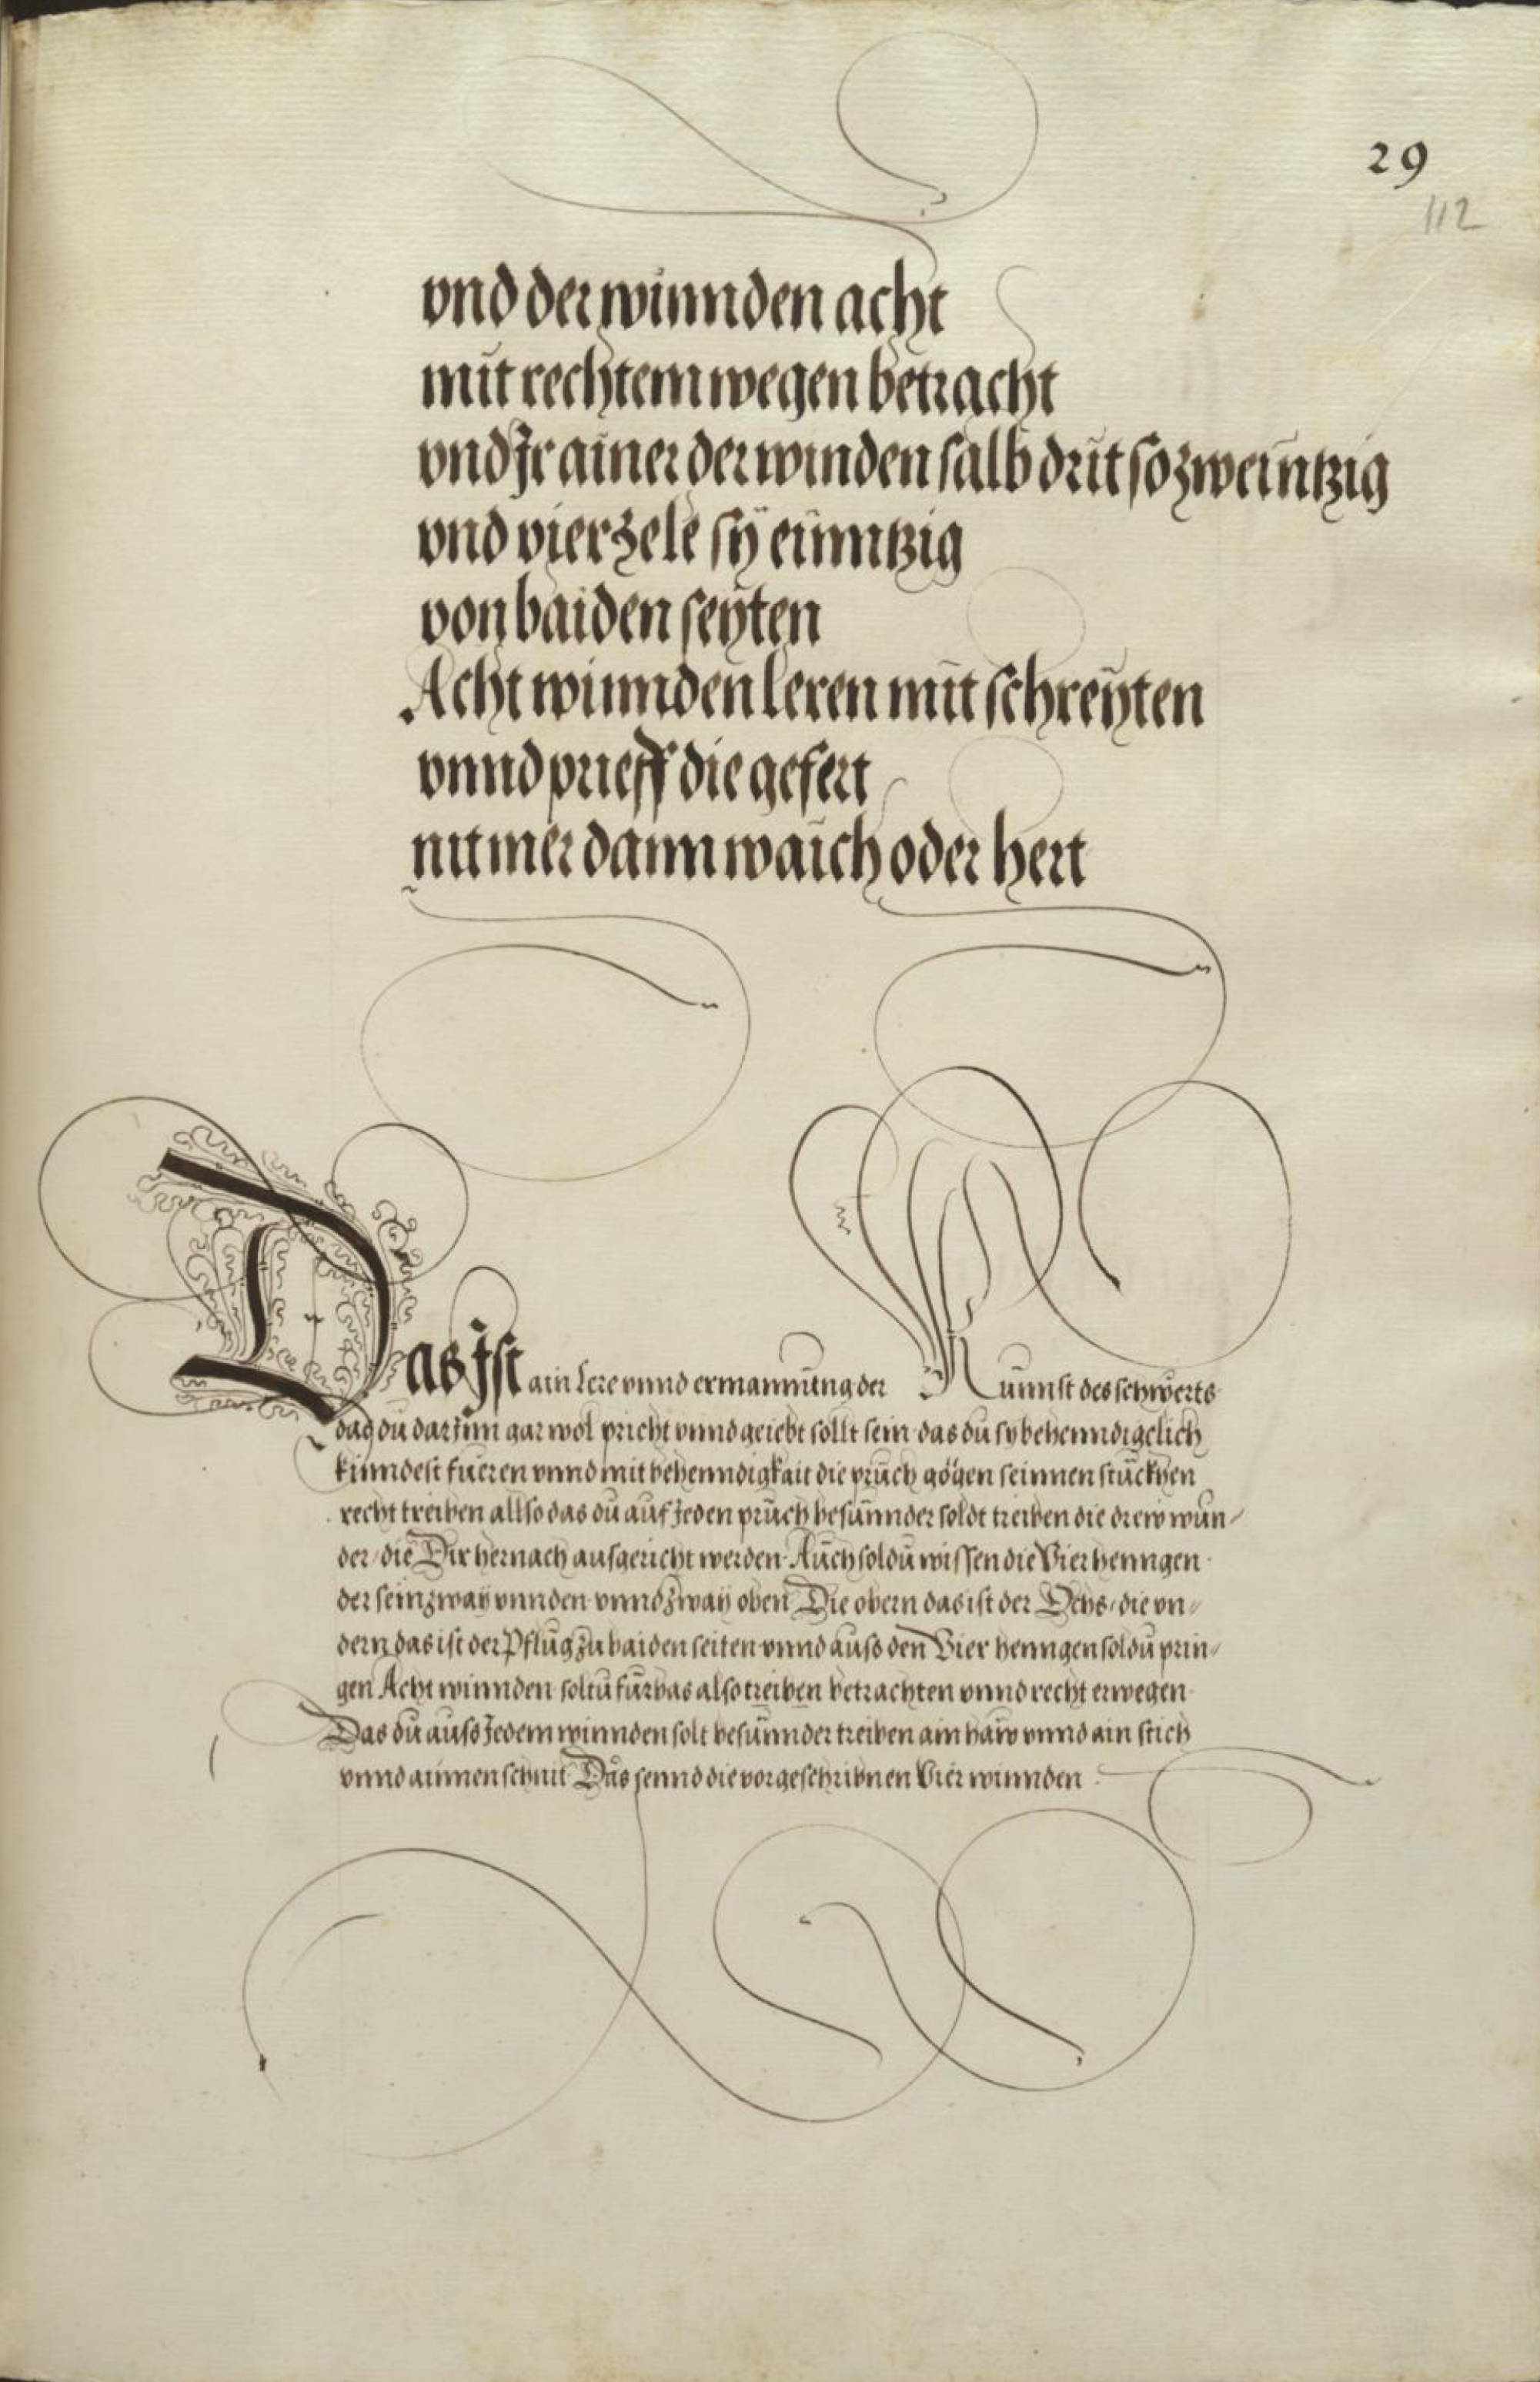 29
112
vnd der winnden acht
mit rechtem wegen betracht
vnd Jr ainer der winden salb drit so zweintzig
vnd vier zele sÿ einntzig
von baiden seÿten
Acht winnden leren mit schreÿten
vnnd prieff die gefert
nit mer dann waich oder hert
Das Jst ain lere vnnd ermannung der Kunnst des schwerts
das du darjnn gar wol pricht vnnd geiebt sollt sein das du sy behenndigelich
kinndest fueren vnnd mit behenndigkait die pruch gögen seinnen stuckhen
recht treiben allso das du auf Jeden pruch besunnder soldt treiben die drew wun-
der die Dir hernach ausgericht werden Auch soldu wissen die Vier henngen
der sein zway vnnden vnnd zwaÿ oben Die obern das ist der Ochs die vn-
dern das ist der Pflug zu baiden seiten vnnd auss den Vier henngen soldu prin-
gen Acht winnden soltu furbas also treiben betrachten vnnd recht erwegen
Das du auss Jedem winnden solt besunnder treiben ain haw vnnd ain stich
vnnd ainnen schnit Das sennd die vorgeschribnen Vier winnden